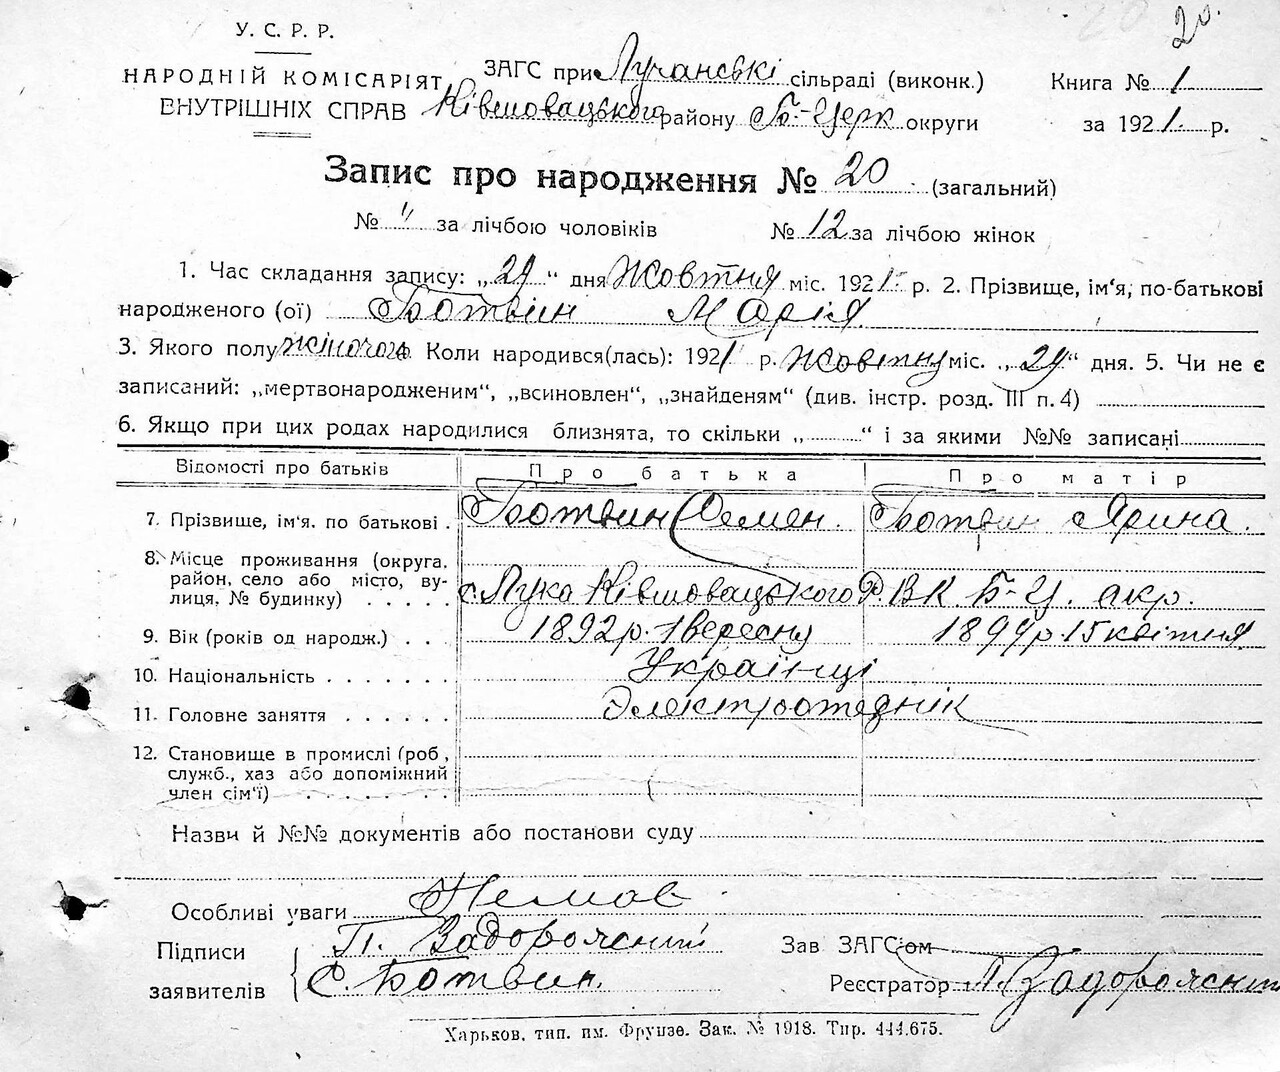 20.
У. С. Р. Р.
НАРОДНІЙ КОМІСАРІЯТ
ВНУТРІШНІХ СПРАВ
ЗАГС при Лучанські сільраді (виконк.)
Ківшовацького району Б-Церк округи
Книга № 1
за 1921. р.
Запис про народження № 20 (загальний)
№ " за лічбою чоловіків № 12 за лічбою жінок
1. Час складання запису: „29" дня Жовтня міс. 1921 р. 2. Прізвище, ім'я, по-батькові
народженого (ої) Ботвин Марія
3. Якого полу жіночого. Коли народився(лась): 1921 р. Жовтня міс. „29" дня. 5. Чи не є
записаний: „мертвонародженим", „всиновлен", „знайденям" (див. інстр. розд. III п. 4)
6. Якщо при цих родах народилися близнята, то скільки „ " і за якими №№ записані
Відомості про батьків Про батька Про матір
7. Прізвище, ім'я. по батькові . Ботвин Семен. Ботвин Ярина.
8. Місце проживання (округа,
район, село або місто, ву-
лиця, № будинку) . . . . . с. Лука Ківшовацького Р.В.К. Б-Ц. акр.
9. Вік (років од народж.) . . . 1892 р. 1 вересня 1899 р. 15 квітня
10. Національність . . . . . . . Українці
11. Головне заняття . . . . . .
12. Становище в промислі (роб,
служб., хаз або допоміжний
член сім'ї) . . . . . . . .
Назви й №№ документів або постанови суду
Особливі уваги Немає
Підписи
заявителів
П. Задорожний
С. Ботвин.
Зав ЗАГС'ом
Реєстратор П. Задорожний
Харьков, тип. им. Фрунзе. Зак. № 1918. Тир. 444.675.